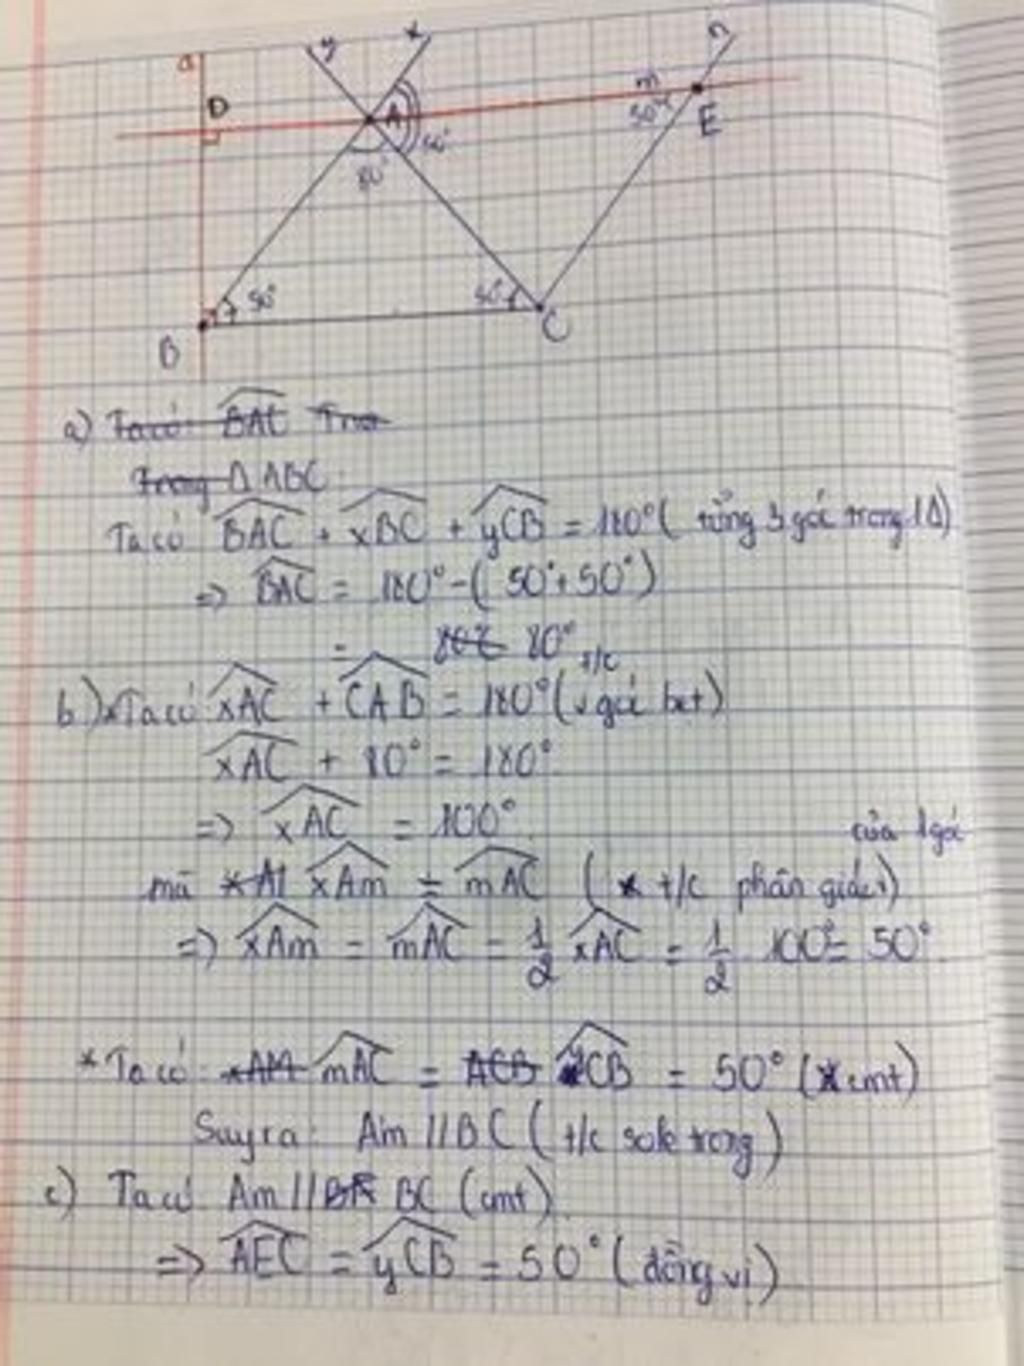 a
y
x
n
D
A
m
E
50°
80°
50°
50°
B
C
a) Ta có BAC
Trong Δ ABC
Ta có BAC + xBC + yCB = 180° ( tổng 3 góc trong 1Δ)
=> BAC = 180° - ( 50° + 50° )
= 80°
b) * Ta có xAC + CAB = 180° ( t/c góc bẹt)
xAC + 80° = 180°
=> xAC = 100°
mà xAm = mAC ( t/c phân giác của 1 góc)
=> xAm = mAC = 1/2 xAC = 1/2 100° = 50°
* Ta có mAC = yCB = 50° ( cmt)
Suy ra: Am // BC ( t/c sole trong )
c) Ta có Am // BC (cmt)
=> AEC = yCB = 50° ( đồng vị )